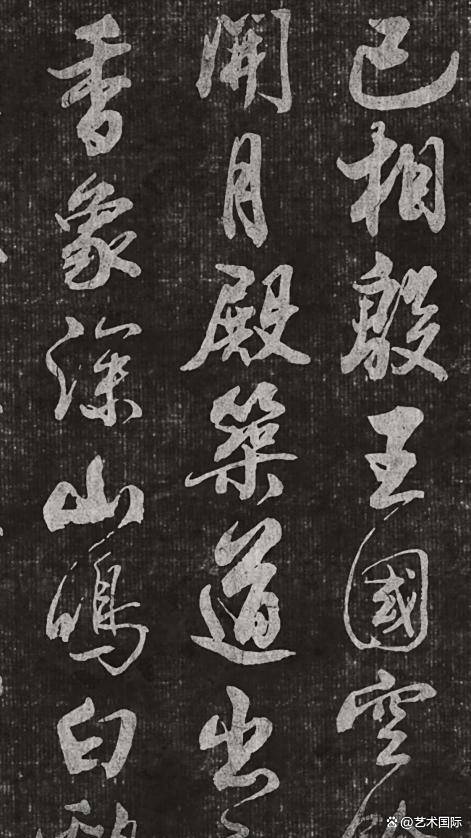 已相殷王國空
開月殿築道出
香象深山鳴白
@艺术国际